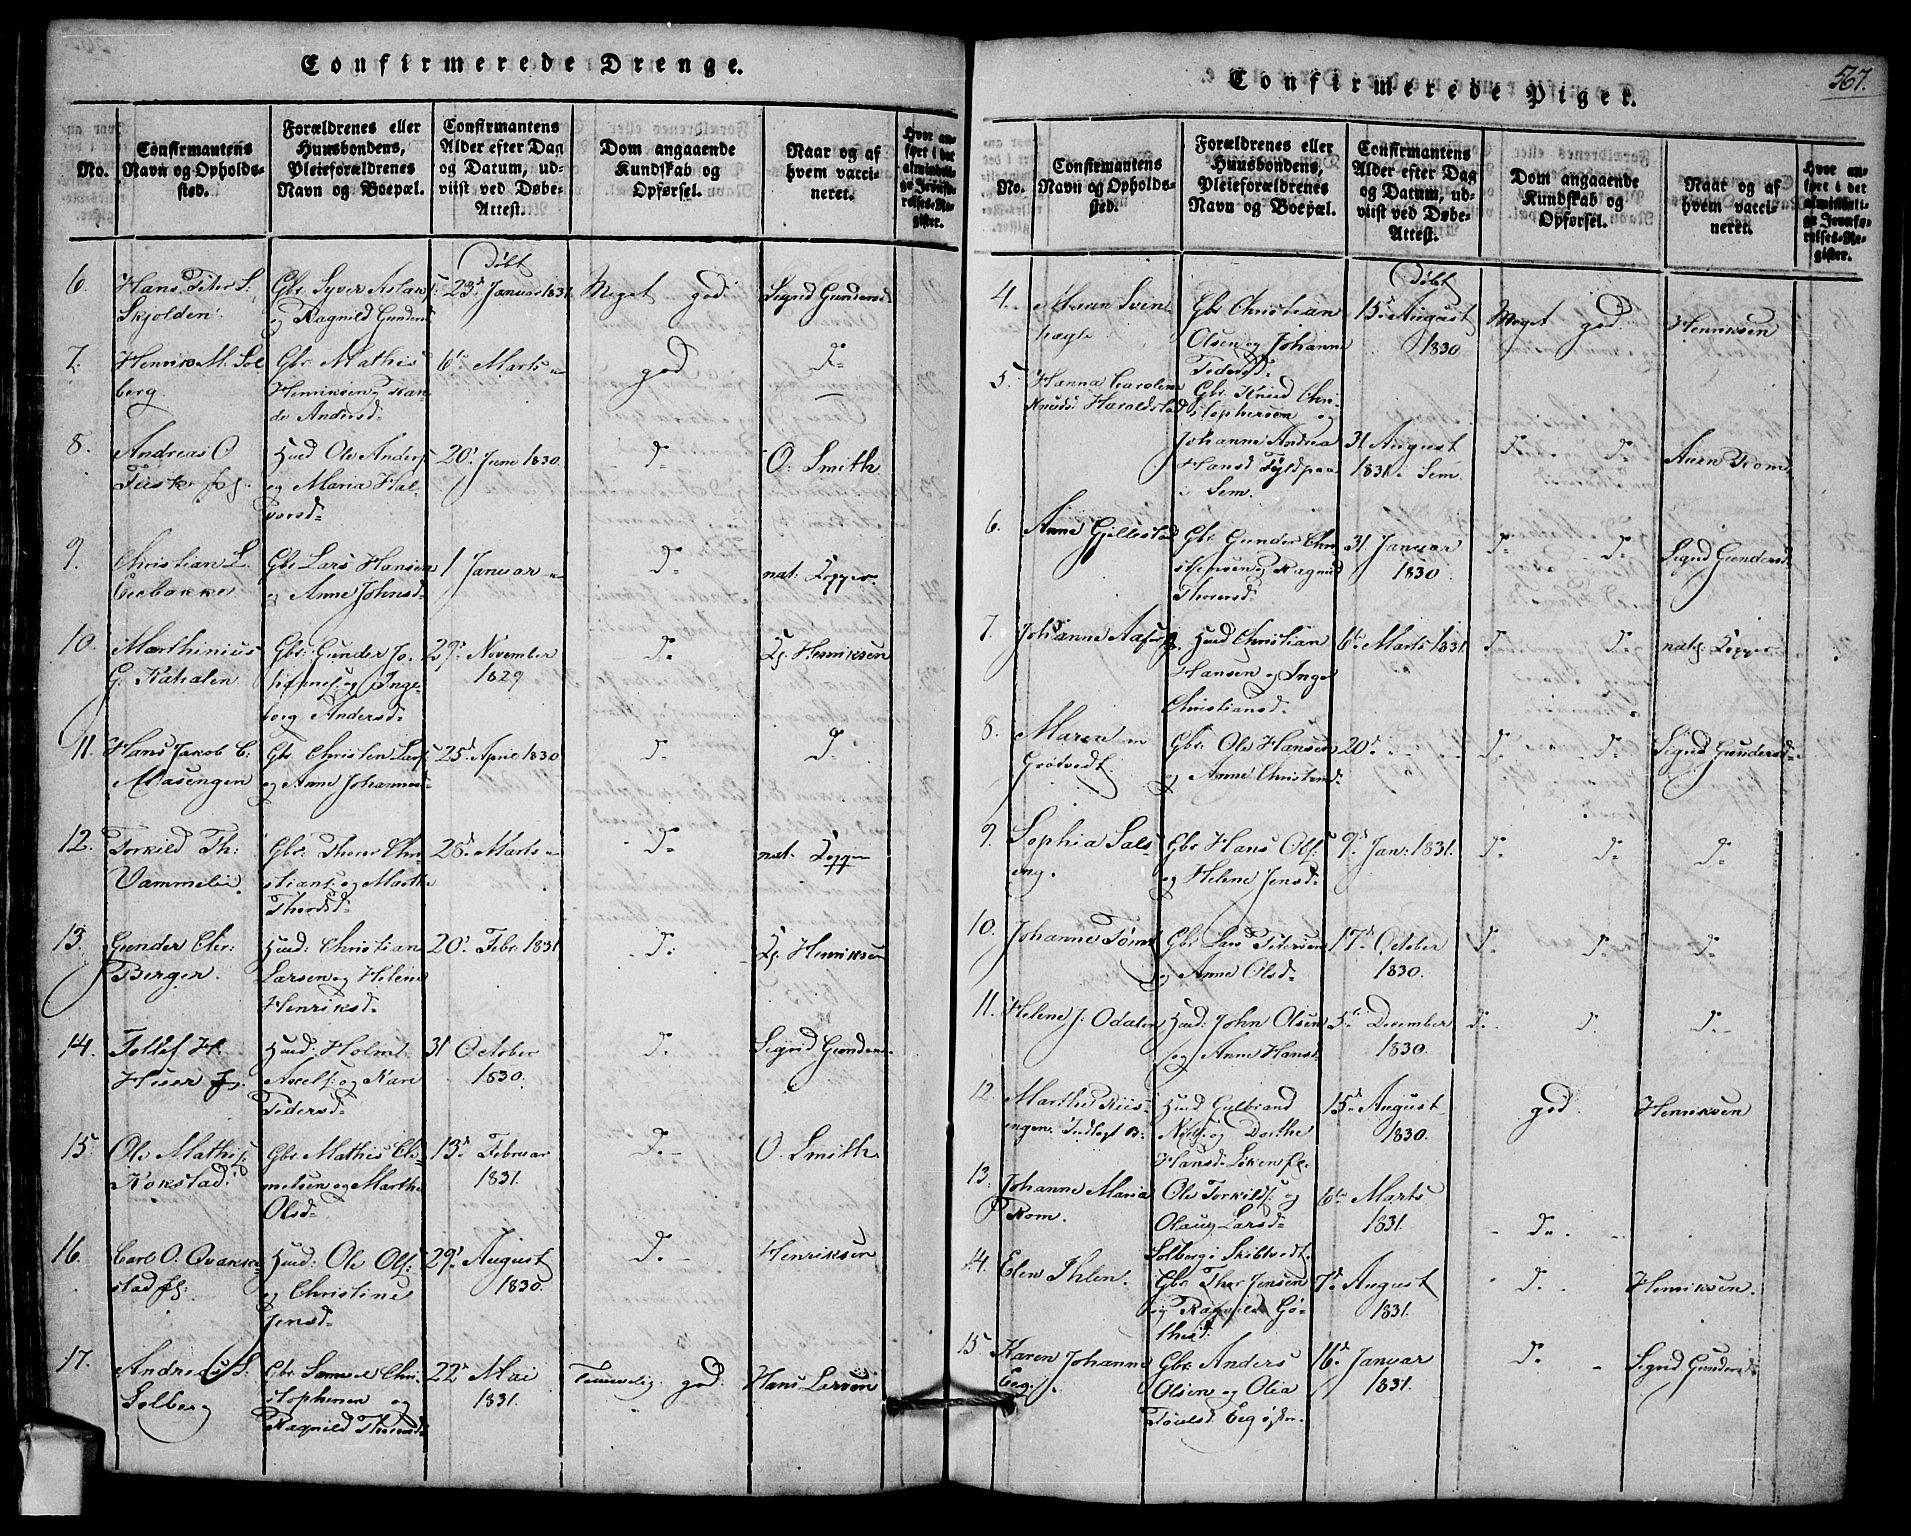 Confirmerede Drenge.
No.
Confirmantens
Navn og Opholds-
sted.
Forældrenes eller
Huusbondens,
Pleieforældrenes
Navn og Boepæl.
Confirmantens
Alder efter Dag
og Datum, ud-
viist ved Døbe-
Attest.
Dom angaaende
Kundskab og
Opførsel.
Naar og af
hvem vacci-
neret.
Hvor an-
ført i det
almindeli-
ge Jevnfø-
relses-Re-
gister.
6.
Hans Peter S.
Skjolden.
Gbr. Syver Aslaks:
og Ragnild Gunders
Døbt
23d Januar 1831.
Meget god
Signd Gundersd
7.
Henrik M. Sol
berg
Gbr. Mathis
Henriksen og Ran-
di Andersd
6te Marts "
god
D=
8.
Andreas O.
Huusd Ole Anders
og Maria Hal-
vorsd=
20d Juni 1830.
D=
O. Smith
9.
Christian L.
Eebakke
Gbr Lars Hansen
og Anne Johnsd
1 Januar "
D=
nat: Kopper
10.
Marthinius
G. Kahalen
Gbr: Gunder Jo-
hannes og Inge-
borg Andersd=
29d November
1829
D=
Henriksen
11.
Hans Jakob C.
Aasengen
Gbr. Christen Lars
og Anne Johannes
25d April 1830
D=
D=
12.
Torkild Th:
Vammelie.
Gbr. Thore Chri-
stians: og Marthe
Thordsd
28d Marts "
D=
nat. Kopper
13.
Gunder Chr:
Berger.
Huusd: Christian
Larsen og Helene
Henriksd=
20d Febr 1831
D=
Henriksen
14.
Tollef H.
Huser
Huusd: Holm
Axels: og Kari
Pedersd=
31 October
1830.
D=
Signd Gunders.
15.
Ole Mathis:
Kokstad
Gbr Mathis Cle-
metsen og Marthe
Olsd=
13d Februar
1831.
D=
O. Smith.
16.
Carl O. Qvakke-
stad
Huusd: Ole Ols:
og Christine
Jensd=
29d August
1830.
D=
Henriksen
17.
Andreas S.
Solberg
Gbr. Samuel Chri-
stophersen og
Ragnild Thoresd=
22d Mai
1831.
Temmelig god.
Hans Larsen
567.
Confirmerede Piger.
No.
Confirmantens
Navn og Opholds-
sted.
Forældrenes eller
Huusbondens,
Pleieforældrenes
Navn og Boepæl.
Confirmantens
Alder efter Dag
og Datum, ud-
viist ved Døbe-
Attest.
Dom angaaende
Kundskab og
Opførsel.
Naar og af
hvem vacci-
neret.
Hvor an-
ført i det
almindeli-
ge Jevnfø-
relses-Re-
gister.
4.
Maren Sven
hagle
Gbr Christian
Olsen og Johanne
Pedersd
Døbt
15d August
1830
Meget god
Henriksen
5.
Hanna Caroline
Knuds: Haraldstad
Gbr. Knud Chri-
stophersen og
Johanne Andrea
Hansd Fyldpaa
i Sem.
31 August
1831. Sem.
D= D=
Anen Rom
6.
Anne Gjellestad
Gbr. Gunder Chri-
stensen og Ragnild
Thoresd=
31 Januar
1830.
D= D=
Signd Gundersd=
7.
Johanne Aas
Huusd Christian
Hansen og Inger
Christiansd=
6te Marts 1831
D= D=
natl. Kopper
8.
Maren
Grotvedt.
Gbr. Ole Hansen
og Anne Christensd
20d " "
D= D=
Signd Gundersd=
9.
Sophia Sals-
eng.
Gbr Hans Ols:
og Helene Jensd=
9d Jan: 1831.
D= D=
D=
10.
Johanne
Gbr. Lars Petersen
og Anne Olsd=
17d October
1830.
D= D=
D=
11.
Helene J. Odalen
Huusd: John Olsen
og Anne Hans:
5te December
1830.
D= D=
D=
12.
Marthe Riis-
engen. Indlagt
Huusd Gulbrand
Niels: og Dorthe
Hansd. Løken
15d August
1830.
god.
Henriksen
13.
Johanne Maria
Rom.
Ole Torkilds: og
Olaug Larsd=
Solberg i Skibtvedt.
6te Marts
1831.
D=
14.
Elen Ihlen.
Gbr Thor Jensen
og Ragnild Gø-
thesd.
7d August
1831.
D=
Henriksen.
15
Karen Johanne
Eeg.
Gbr. Anders
Olsen og Olia
Poulsd Eeg østre.
16d Januar
1831.
D=
Signd Gundersd=